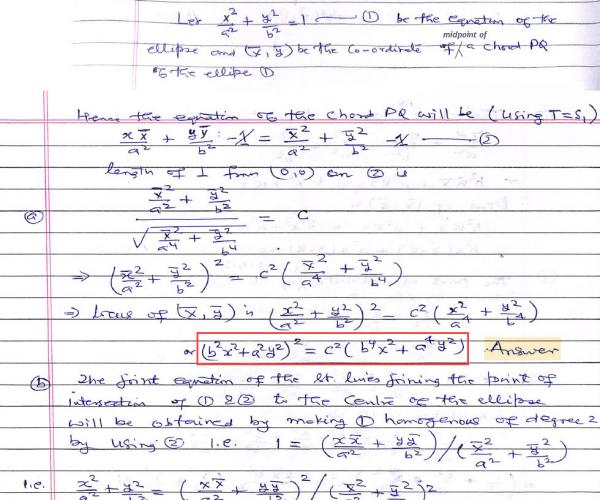 Let x²/a² + y²/b² = 1 — ① be the equation of the
ellipse and (x̄, ȳ) be the co-ordinate of midpoint of a chord PQ
of the ellipse ①
Hence the equation of the chord PQ will be (using T=S₁)
x x̄/a² + y ȳ/b² - 1 = x̄²/a² + ȳ²/b² - 1 — ②
length of ⊥ from (0,0) on ② is
ⓐ (x̄²/a² + ȳ²/b²) / √(x̄²/a⁴ + ȳ²/b⁴) = c
⇒ (x̄²/a² + ȳ²/b²)² = c² (x̄²/a⁴ + ȳ²/b⁴)
⇒ locus of (x̄, ȳ) is (x²/a² + y²/b²)² = c² (x²/a⁴ + y²/b⁴)
or (b²x²+a²y²)² = c²(b⁴x² + a⁴y²) Answer
ⓑ The joint equation of the st. lines joining the point of
intersection of ① & ② to the centre of the ellipse
will be obtained by making ① homogenous of degree 2
by using ② i.e. 1 = (x x̄/a² + y ȳ/b²) / (x̄²/a² + ȳ²/b²)
i.e. x²/a² + y²/b² = (x x̄/a² + y ȳ/b²)² / (x̄²/a² + ȳ²/b²)²